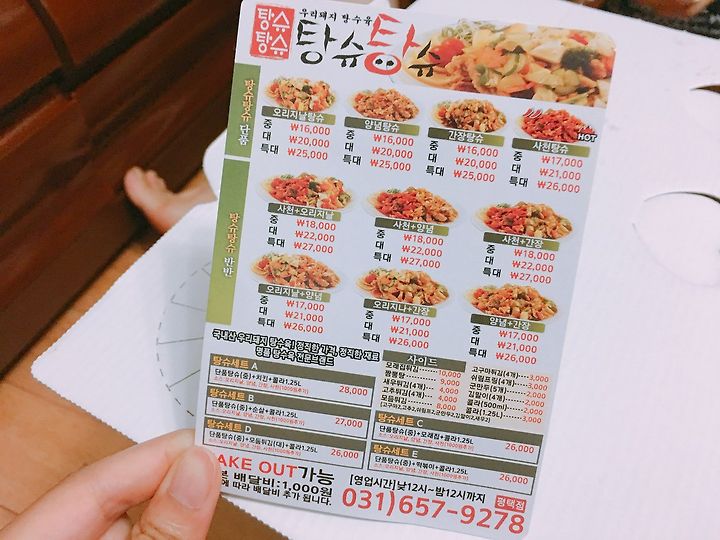 탕슈
탕슈
우리돼지 탕수육
탕슈탕슈
탕슈탕슈 단품
오리지날탕슈
중 ₩16,000
대 ₩20,000
특대 ₩25,000
양념탕슈
중 ₩16,000
대 ₩20,000
특대 ₩25,000
간장탕슈
중 ₩16,000
대 ₩20,000
특대 ₩25,000
HOT
사천탕슈
중 ₩17,000
대 ₩21,000
특대 ₩26,000
탕슈탕슈 반반
사천+오리지날
중 ₩18,000
대 ₩22,000
특대 ₩27,000
사천+양념
중 ₩18,000
대 ₩22,000
특대 ₩27,000
사천+간장
중 ₩18,000
대 ₩22,000
특대 ₩27,000
오리지날+양념
중 ₩17,000
대 ₩21,000
특대 ₩26,000
오리지나+간장
중 ₩17,000
대 ₩21,000
특대 ₩26,000
양념+간장
중 ₩17,000
대 ₩21,000
특대 ₩26,000
국내산 우리돼지 탕수육! 정직한 가격, 정직한 재료
명품 탕수육 전문브랜드
탕슈세트 A
단품탕슈(중)+치킨+콜라1.25L
소스:오리지날, 양념, 간장, 사천(1000원추가)
28,000
탕슈세트 B
단품탕슈(중)+순살+콜라1.25L
소스:오리지날, 양념, 간장, 사천(1000원추가)
27,000
탕슈세트 D
단품탕슈(중)+모듬튀김(대)+콜라1.25L
소스:오리지날, 양념, 간장, 사천(1000원추가)
26,000
사이드
모래집튀김 10,000
짬뽕탕 9,000
새우튀김(4개) 4,000
고추튀김(4개) 4,000
모듬튀김 8,000
(고구마2,고추2,쉬림프2,군만두2,김말이2,새우2)
고구마튀김(4개) 3,000
쉬림프링(4개) 3,000
군만두(5개) 2,000
김말이(4개) 2,000
콜라(500ml) 2,000
콜라(1.25L) 3,000
탕슈세트 C
단품탕슈(중)+모래집+콜라1.25L
소스:오리지날, 양념, 간장, 사천(1000원추가)
26,000
탕슈세트 E
단품탕슈(중)+떡볶이+콜라1.25L
소스:오리지날, 양념, 간장, 사천(1000원추가)
26,000
AKE OUT가능
배달비:1,000원
에 따라 배달비 추가 됩니다.
[영업시간] 낮12시~밤12시까지
031)657-9278
평택점